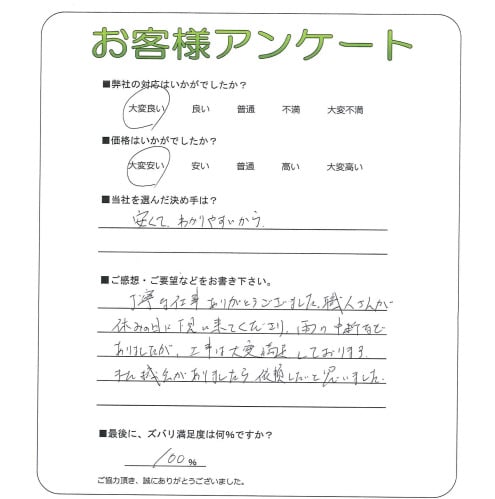 お客様アンケート
■弊社の対応はいかがでしたか？
大変良い 良い 普通 不満 大変不満
■価格はいかがでしたか？
大変安い 安い 普通 高い 大変高い
■当社を選んだ決め手は？
安くて、わかりやすいから。
■ご感想・ご要望などをお書き下さい。
丁寧な仕事ありがとうございました。職人さんが
休みの日に下見に来てくださり、雨の中断など
ありましたが、工事は大変満足しております。
また機会がありましたら依頼したいと思いました。
■最後に、ズバリ満足度は何%ですか？
100 %
ご協力頂き、誠にありがとうございました。